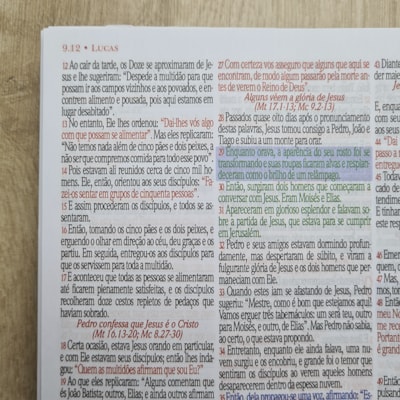 9.12 • LUCAS
12 Ao cair da tarde, os Doze se aproximaram de Je-
sus e lhe sugeriram: “Despede a multidão para que
possam ir aos campos vizinhos e aos povoados, e en-
contrem alimento e pousada, pois aqui estamos em
lugar desabitado”.
13 No entanto, Ele lhes ordenou: “Dai-lhes vós algo
com que possam se alimentar”. Mas eles replicaram:
“Não temos nada além de cinco pães e dois peixes, a
não ser que compremos comida para todo esse povo”.
14 Pois estavam ali reunidos cerca de cinco mil ho-
mens. Ele, então, orientou aos seus discípulos: “Fa-
zei-os sentar em grupos de cinquenta pessoas”.
15 E assim procederam os discípulos, e todos se as-
sentaram.
16 Então, tomando os cinco pães e os dois peixes, e
erguendo o olhar em direção ao céu, deu graças e os
partiu. Em seguida, entregou-os aos discípulos para
que os servissem para toda a multidão.
17 E aconteceu que todas as pessoas se alimentaram
até ficarem plenamente satisfeitas, e os discípulos
recolheram doze cestos repletos de pedaços que
haviam sobrado.
Pedro confessa que Jesus é o Cristo
(Mt 16.13-20; Mc 8.27-30)
18 Certa ocasião, estava Jesus orando em particular,
e com Ele estavam seus discípulos; então lhes inda-
gou: “Quem as multidões afirmam que sou Eu?”
19 Ao que eles replicaram: “Alguns comentam que
és João Batista; outros, Elias; e ainda outros afirmam
27 Com certeza vos asseguro que alguns que aqui se
encontram, de modo algum passarão pela morte an-
tes de verem o Reino de Deus”.
Alguns vêem a glória de Jesus
(Mt 17.1-13; Mc 9.2-13)
28 Passados quase oito dias após o pronunciamento
destas palavras, Jesus tomou consigo a Pedro, João e
Tiago e subiu a um monte para orar.
29 Enquanto orava, a aparência do seu rosto foi se
transformando e suas roupas ficaram alvas e resplan-
deceram como o brilho de um relâmpago.
30 Então, surgiram dois homens que começaram a
conversar com Jesus. Eram Moisés e Elias.
31 Apareceram em glorioso esplendor e falavam so-
bre a partida de Jesus, que estava para se cumprir
em Jerusalém.
32 Pedro e seus amigos estavam dormindo profun-
damente, mas despertaram de súbito, e viram a
fulgurante glória de Jesus e os dois homens que per-
maneciam com Ele.
33 Quando estes iam se afastando de Jesus, Pedro
sugeriu: “Mestre, como é bom que estejamos aqui!
Vamos erguer três tabernáculos: um será teu, outro
para Moisés, e outro, de Elias”. Mas Pedro não sabia,
ao certo, o que estava propondo.
34 Entretanto, enquanto ele ainda falava, uma nu-
vem surgiu e os encobriu, e grande foi o temor que
sentiram os discípulos ao verem aqueles homens
desaparecerem dentro da espessa nuvem.
35 Então, dela propagou-se uma voz, afirmando: “Es-